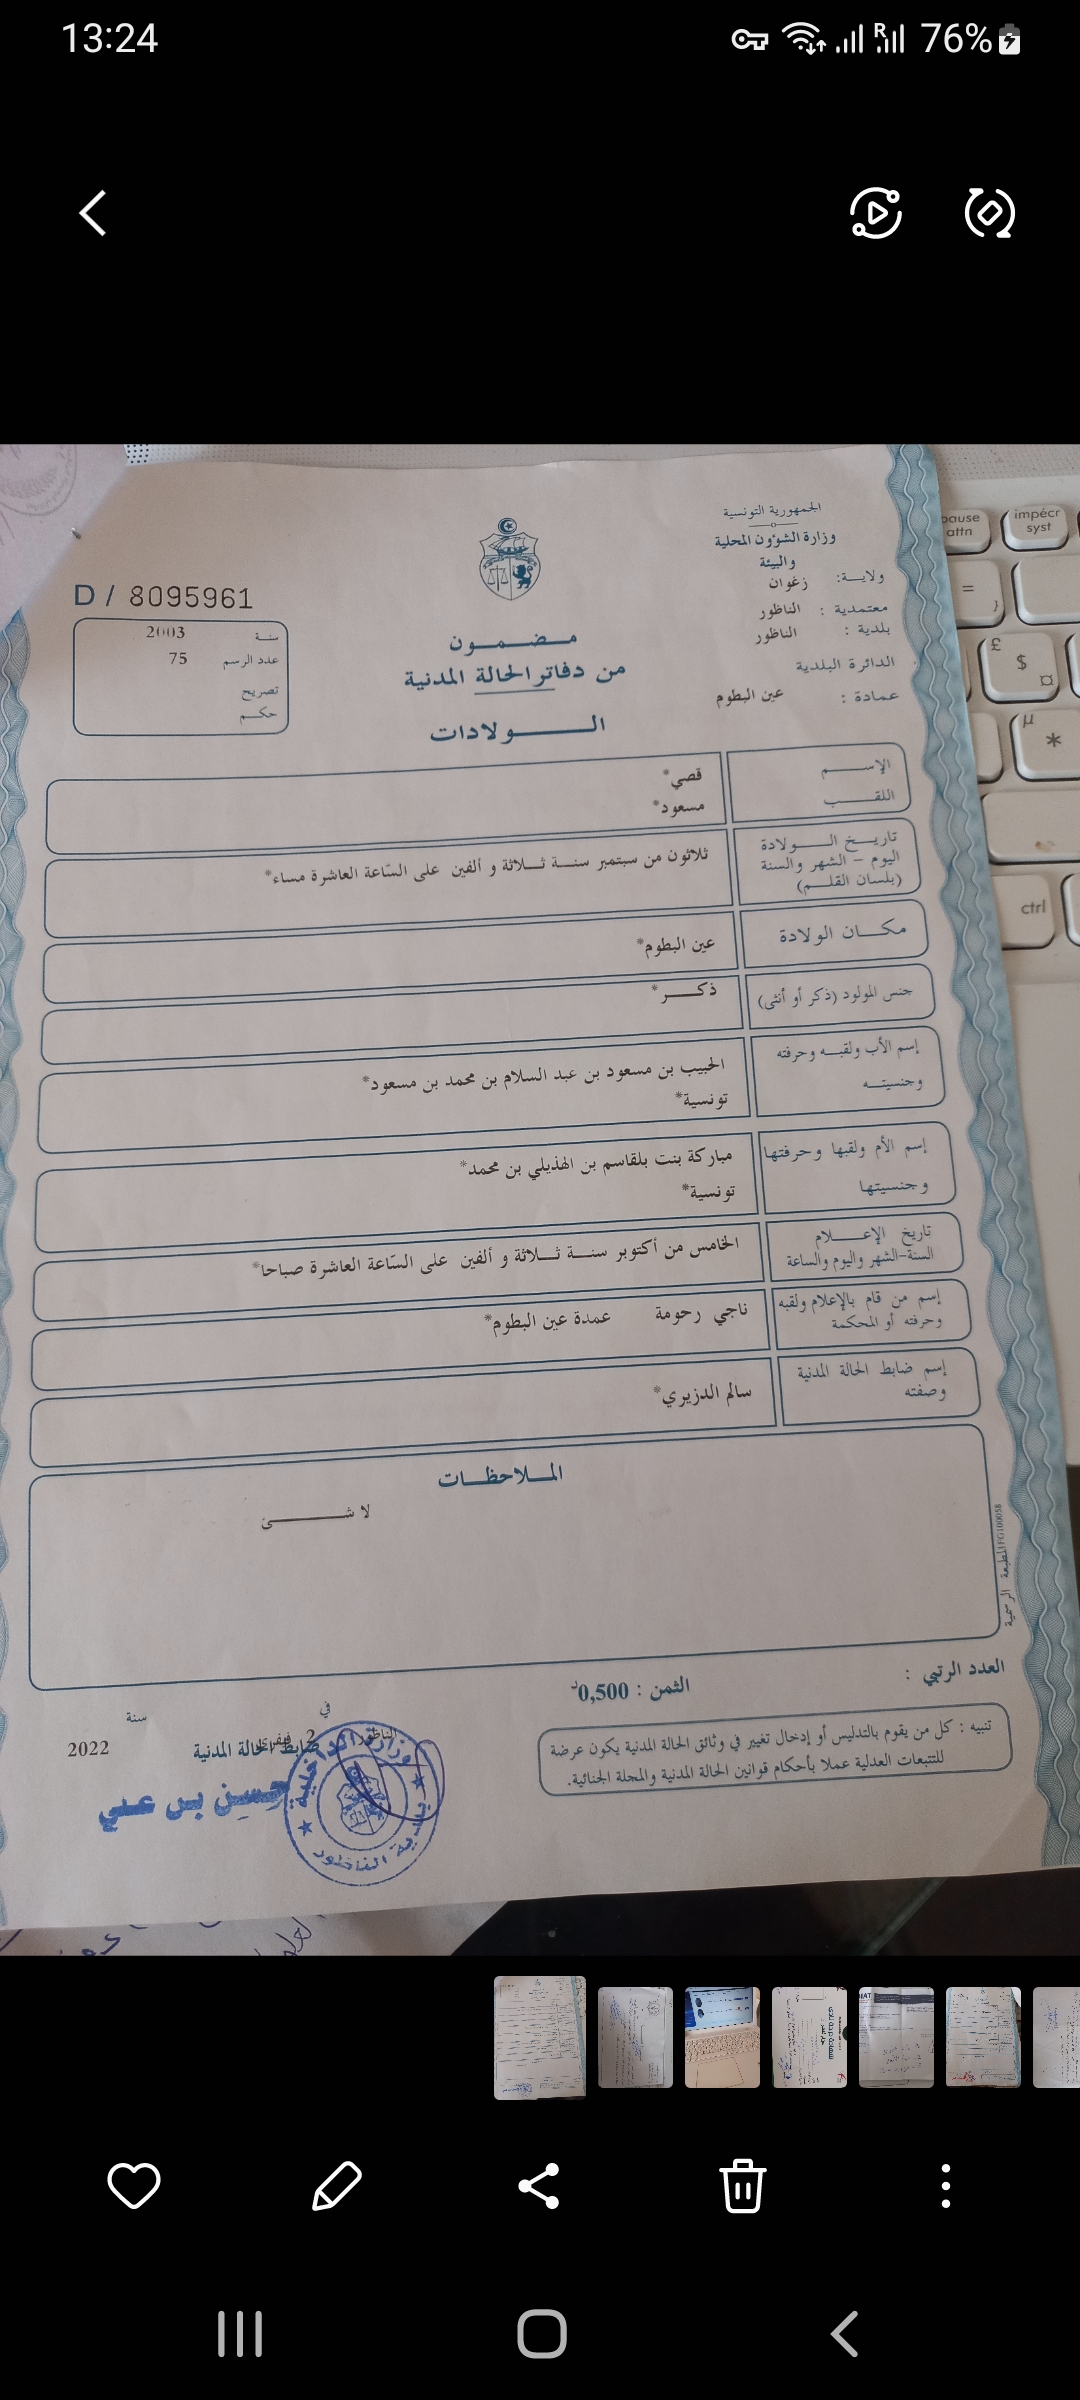 13:24
R
76%
الجمهورية التونسية
وزارة الشؤون المحلية
والبيئة
ولايـة: زغوان
معتمدية : الناظور
بلدية : الناظور
الدائرة البلدية
عمادة : عين البطوم
D / 8095961
سنة 2003
عدد الرسم 75
تصريح
حكم
مضمون
من دفاتر الحالة المدنية
الولادات
الإسم قصي*
اللقب مسعود*
تاريخ الولادة
اليوم – الشهر والسنة
(بلسان القلم)
ثلاثون من سبتمبر سنة ثلاثة و ألفين على السّاعة العاشرة مساء*
مكان الولادة عين البطوم*
جنس المولود (ذكر أو أنثى) ذكر*
إسم الأب ولقبه وحرفته
وجنسيته
الحبيب بن مسعود بن عبد السلام بن محمد بن مسعود*
تونسية*
إسم الأم ولقبها وحرفتها
وجنسيتها
مباركة بنت بلقاسم بن الهذيلي بن محمد*
تونسية*
تاريخ الإعلام
السنة-الشهر واليوم والساعة
الخامس من أكتوبر سنة ثلاثة و ألفين على السّاعة العاشرة صباحا*
إسم من قام بالإعلام ولقبه
وحرفته أو المحكمة
ناجي رحومة عمدة عين البطوم*
إسم ضابط الحالة المدنية
وصفته
سالم الدزيري*
الملاحظات
لا شئ
المطبعة الرسمية FG100058
العدد الرتبي :
الثمن : 0,500د
تنبيه : كل من يقوم بالتدليس أو إدخال تغيير في وثائق الحالة المدنية يكون عرضة
للتتبعات العدلية عملا بأحكام قوانين الحالة المدنية والمجلة الجنائية.
الناظور في 2 فيفري سنة 2022
ضابط الحالة المدنية
حسن بن علي
وزارة الداخلية
بلدية الناظور
pause
attn
impécr
syst
=
}
£
$
¤
µ
*
ctrl